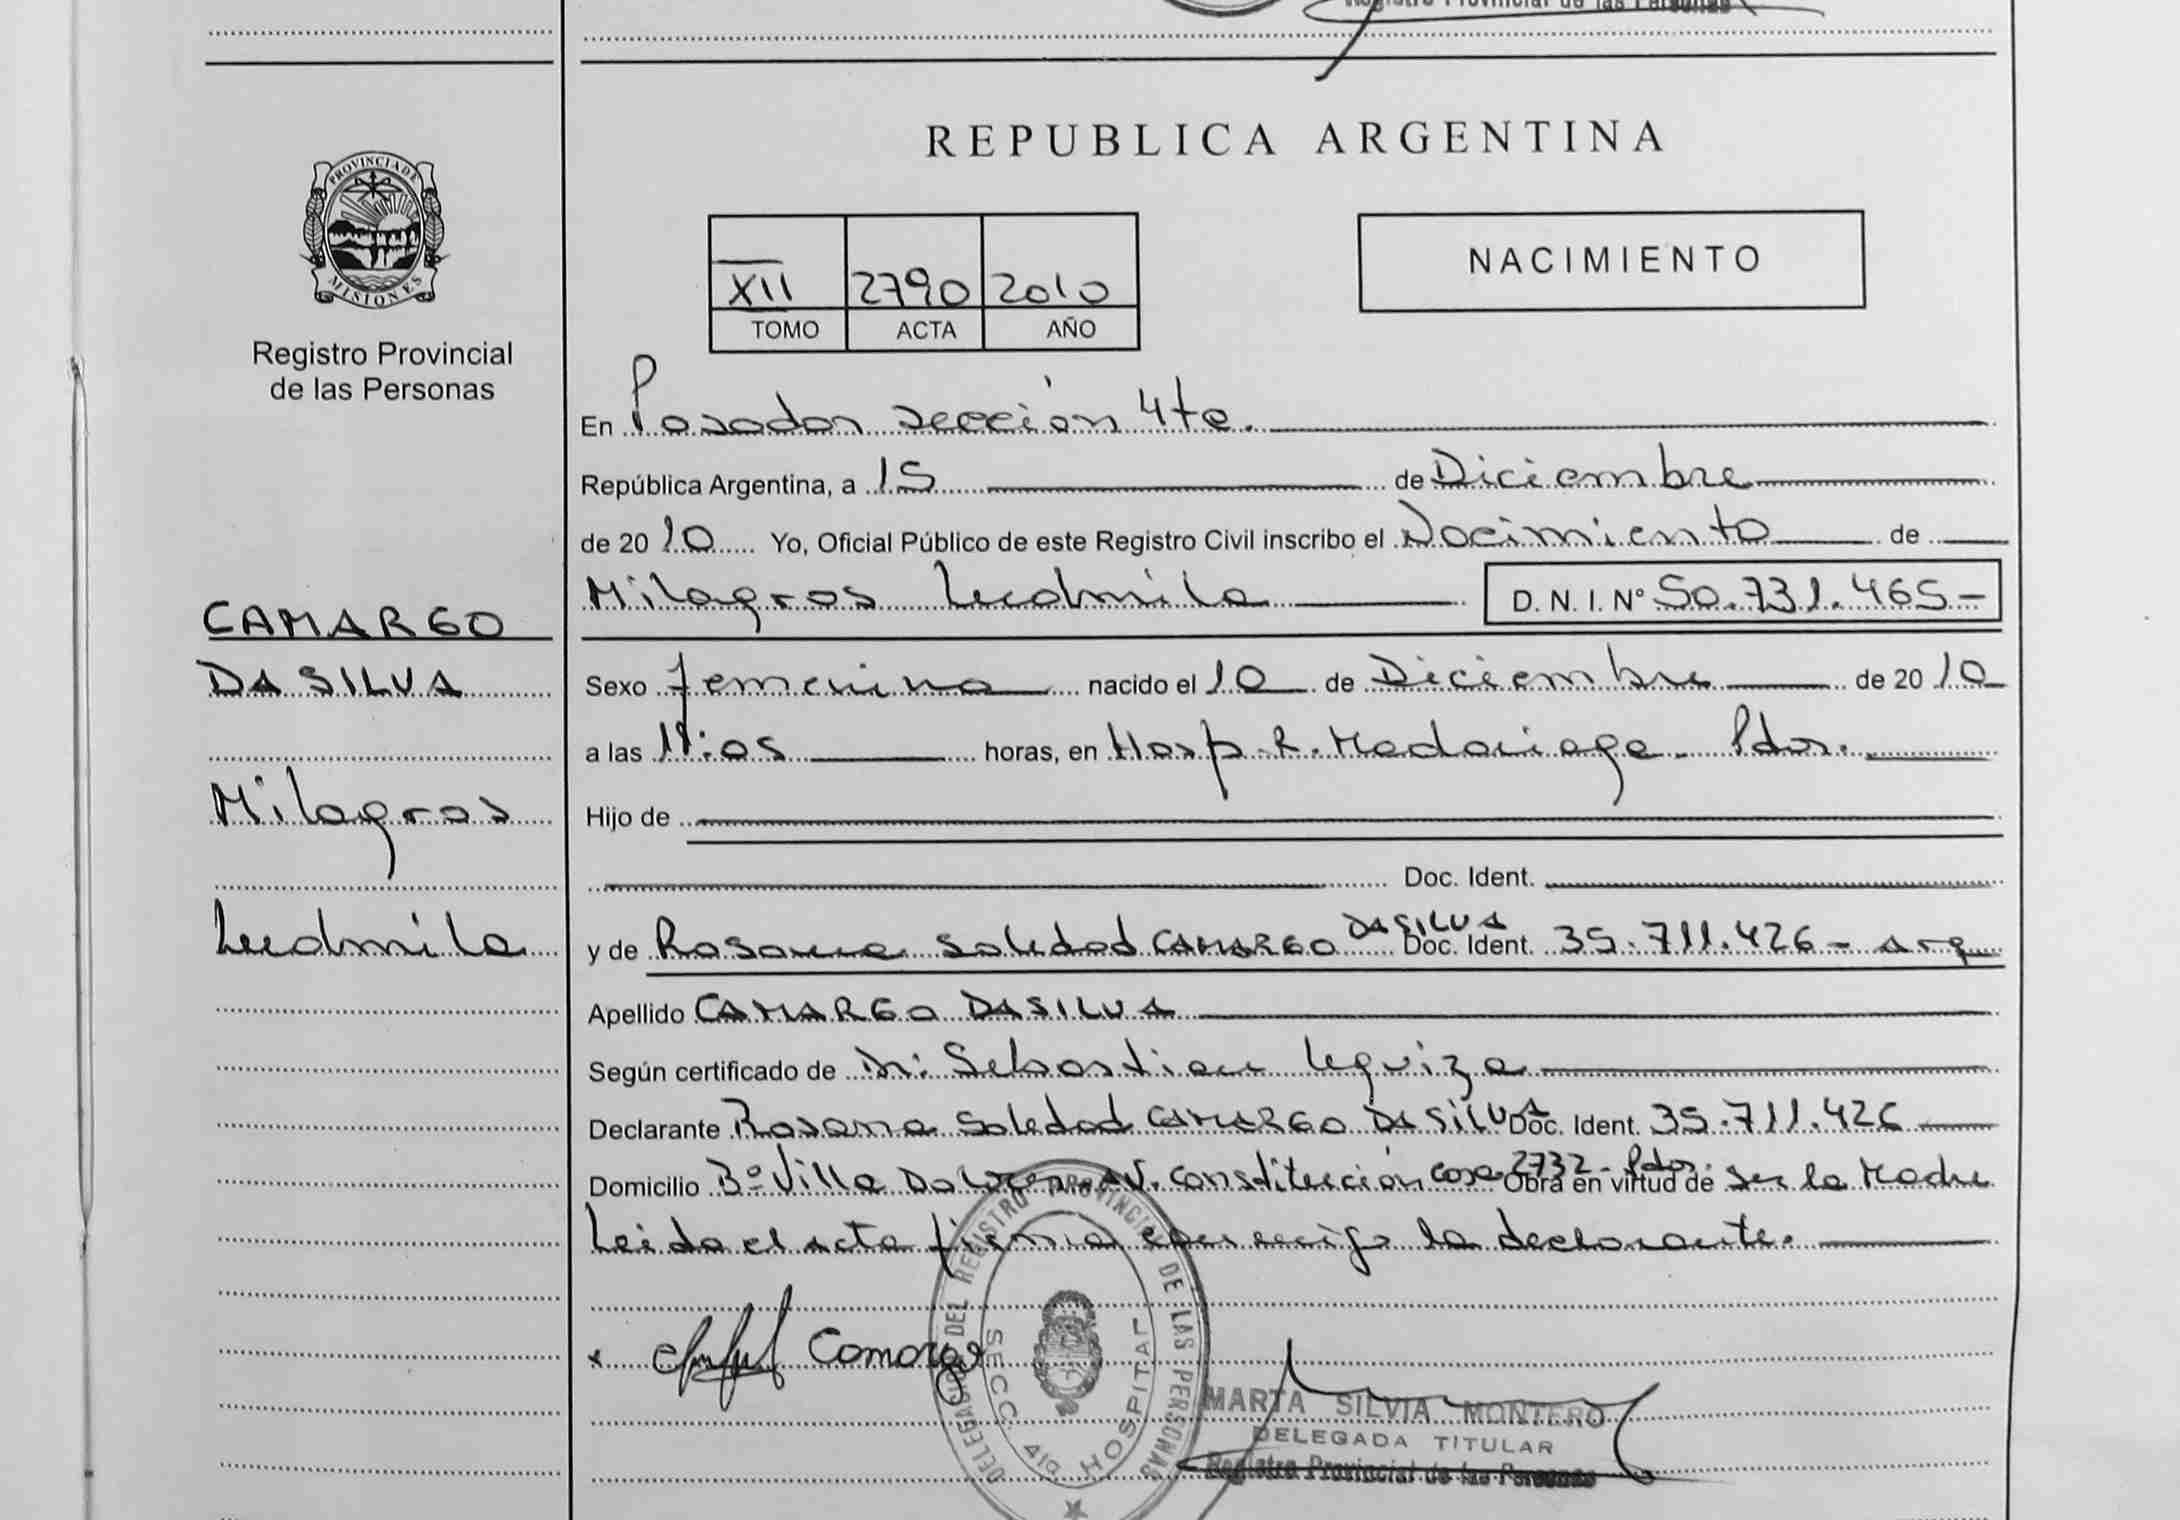 Registro Provincial de las Personas
REPUBLICA ARGENTINA
PROVINCIA DE
MISIONES
Registro Provincial
de las Personas
XII 2790 2010
TOMO ACTA AÑO
NACIMIENTO
En Posadas sección 4ta.
República Argentina, a 15 de Diciembre
de 2010 Yo, Oficial Público de este Registro Civil inscribo el Nacimiento de
Milagros Ludmila D. N. I. N° 50.731.465-
CAMARGO
DA SILVA
Milagros
Ludmila
Sexo femenino nacido el 10 de Diciembre de 2010
a las :05 horas, en Hosp. R. Madariaga - Pdas.
Hijo de
Doc. Ident.
y de Rosana Soledad CAMARGO DA SILVA Doc. Ident. 35.711.426 - arg
Apellido CAMARGO DA SILVA
Según certificado de Dr. Sebastian Leguiza
Declarante Rosana Soledad CAMARGO DA SILVA Doc. Ident. 35.711.426
Domicilio Bº Villa Dolores - AV. Constitución casa 2732 - Pdas. Obra en virtud de ser la Madre
Leida el acta firma conmigo la declarante.
Camargo
DELEGACIÓN DEL REGISTRO PROVINCIAL DE LAS PERSONAS
SECC. 4ta HOSPITAL
MARTA SILVIA MONTERO
DELEGADA TITULAR
Registro Provincial de las Personas